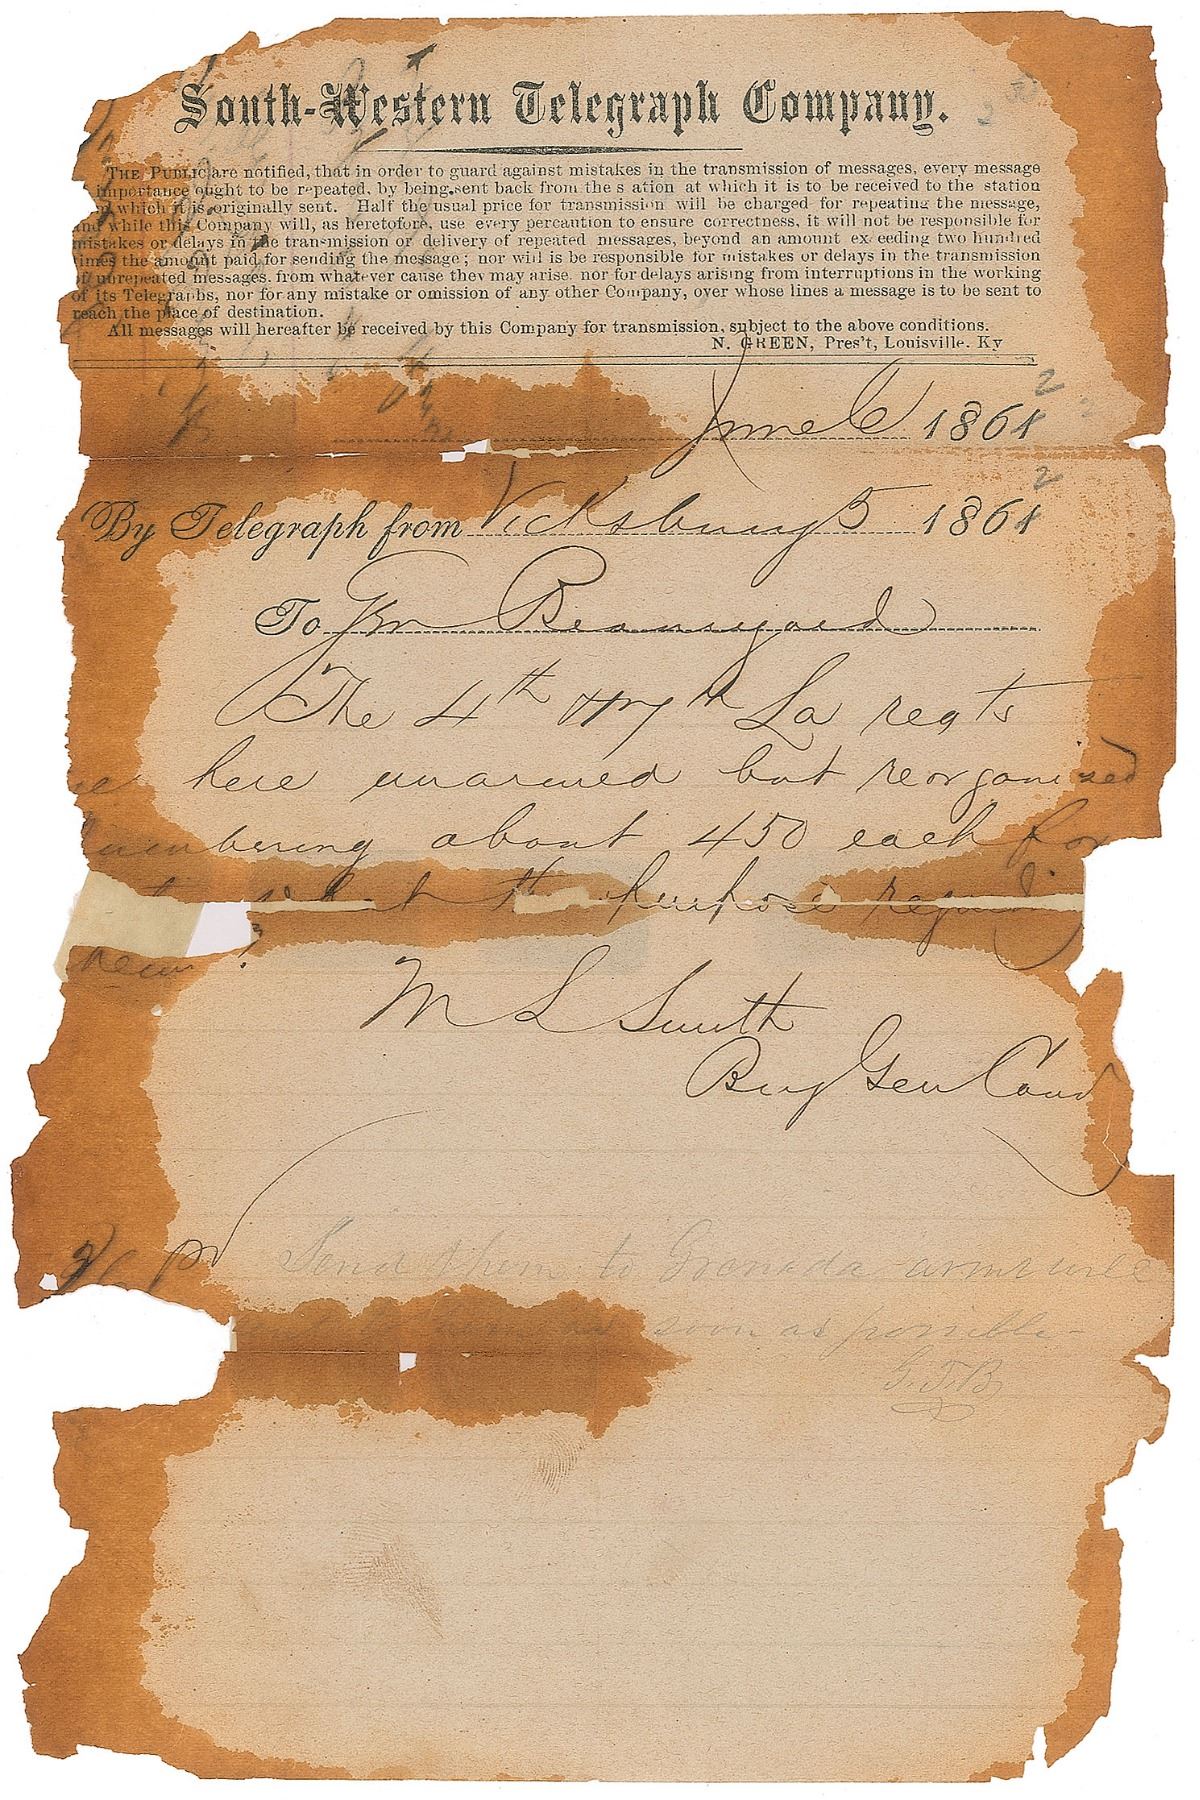 South-Western Telegraph Company.
THE PUBLIC are notified, that in order to guard against mistakes in the transmission of messages, every message
importance ought to be repeated, by being sent back from the s ation at which it is to be received to the station
which it is originally sent. Half the usual price for transmission will be charged for repeating the message,
and while this Company will, as heretofore, use every percaution to ensure correctness, it will not be responsible for
mistakes or delays in the transmission or delivery of repeated messages, beyond an amount exceeding two hundred
times the amount paid for sending the message; nor will is be responsible for mistakes or delays in the transmission
of unrepeated messages, from whatever cause they may arise, nor for delays arising from interruptions in the working
of its Telegraphs, nor for any mistake or omission of any other Company, over whose lines a message is to be sent to
reach the place of destination.
All messages will hereafter be received by this Company for transmission, subject to the above conditions.
N. GREEN, Pres't, Louisville. Ky
June 6 1861 2
By Telegraph from Vicksburg 5 1861 2
To Gen Beauregard
The 4th La regts
here unarmed but reorganized
numbering about 450 each for
what the purpose regarding
them?
M L Smith
Brig Gen Comd
Send them to Granada arms will
soon as possible-
G.T.B.